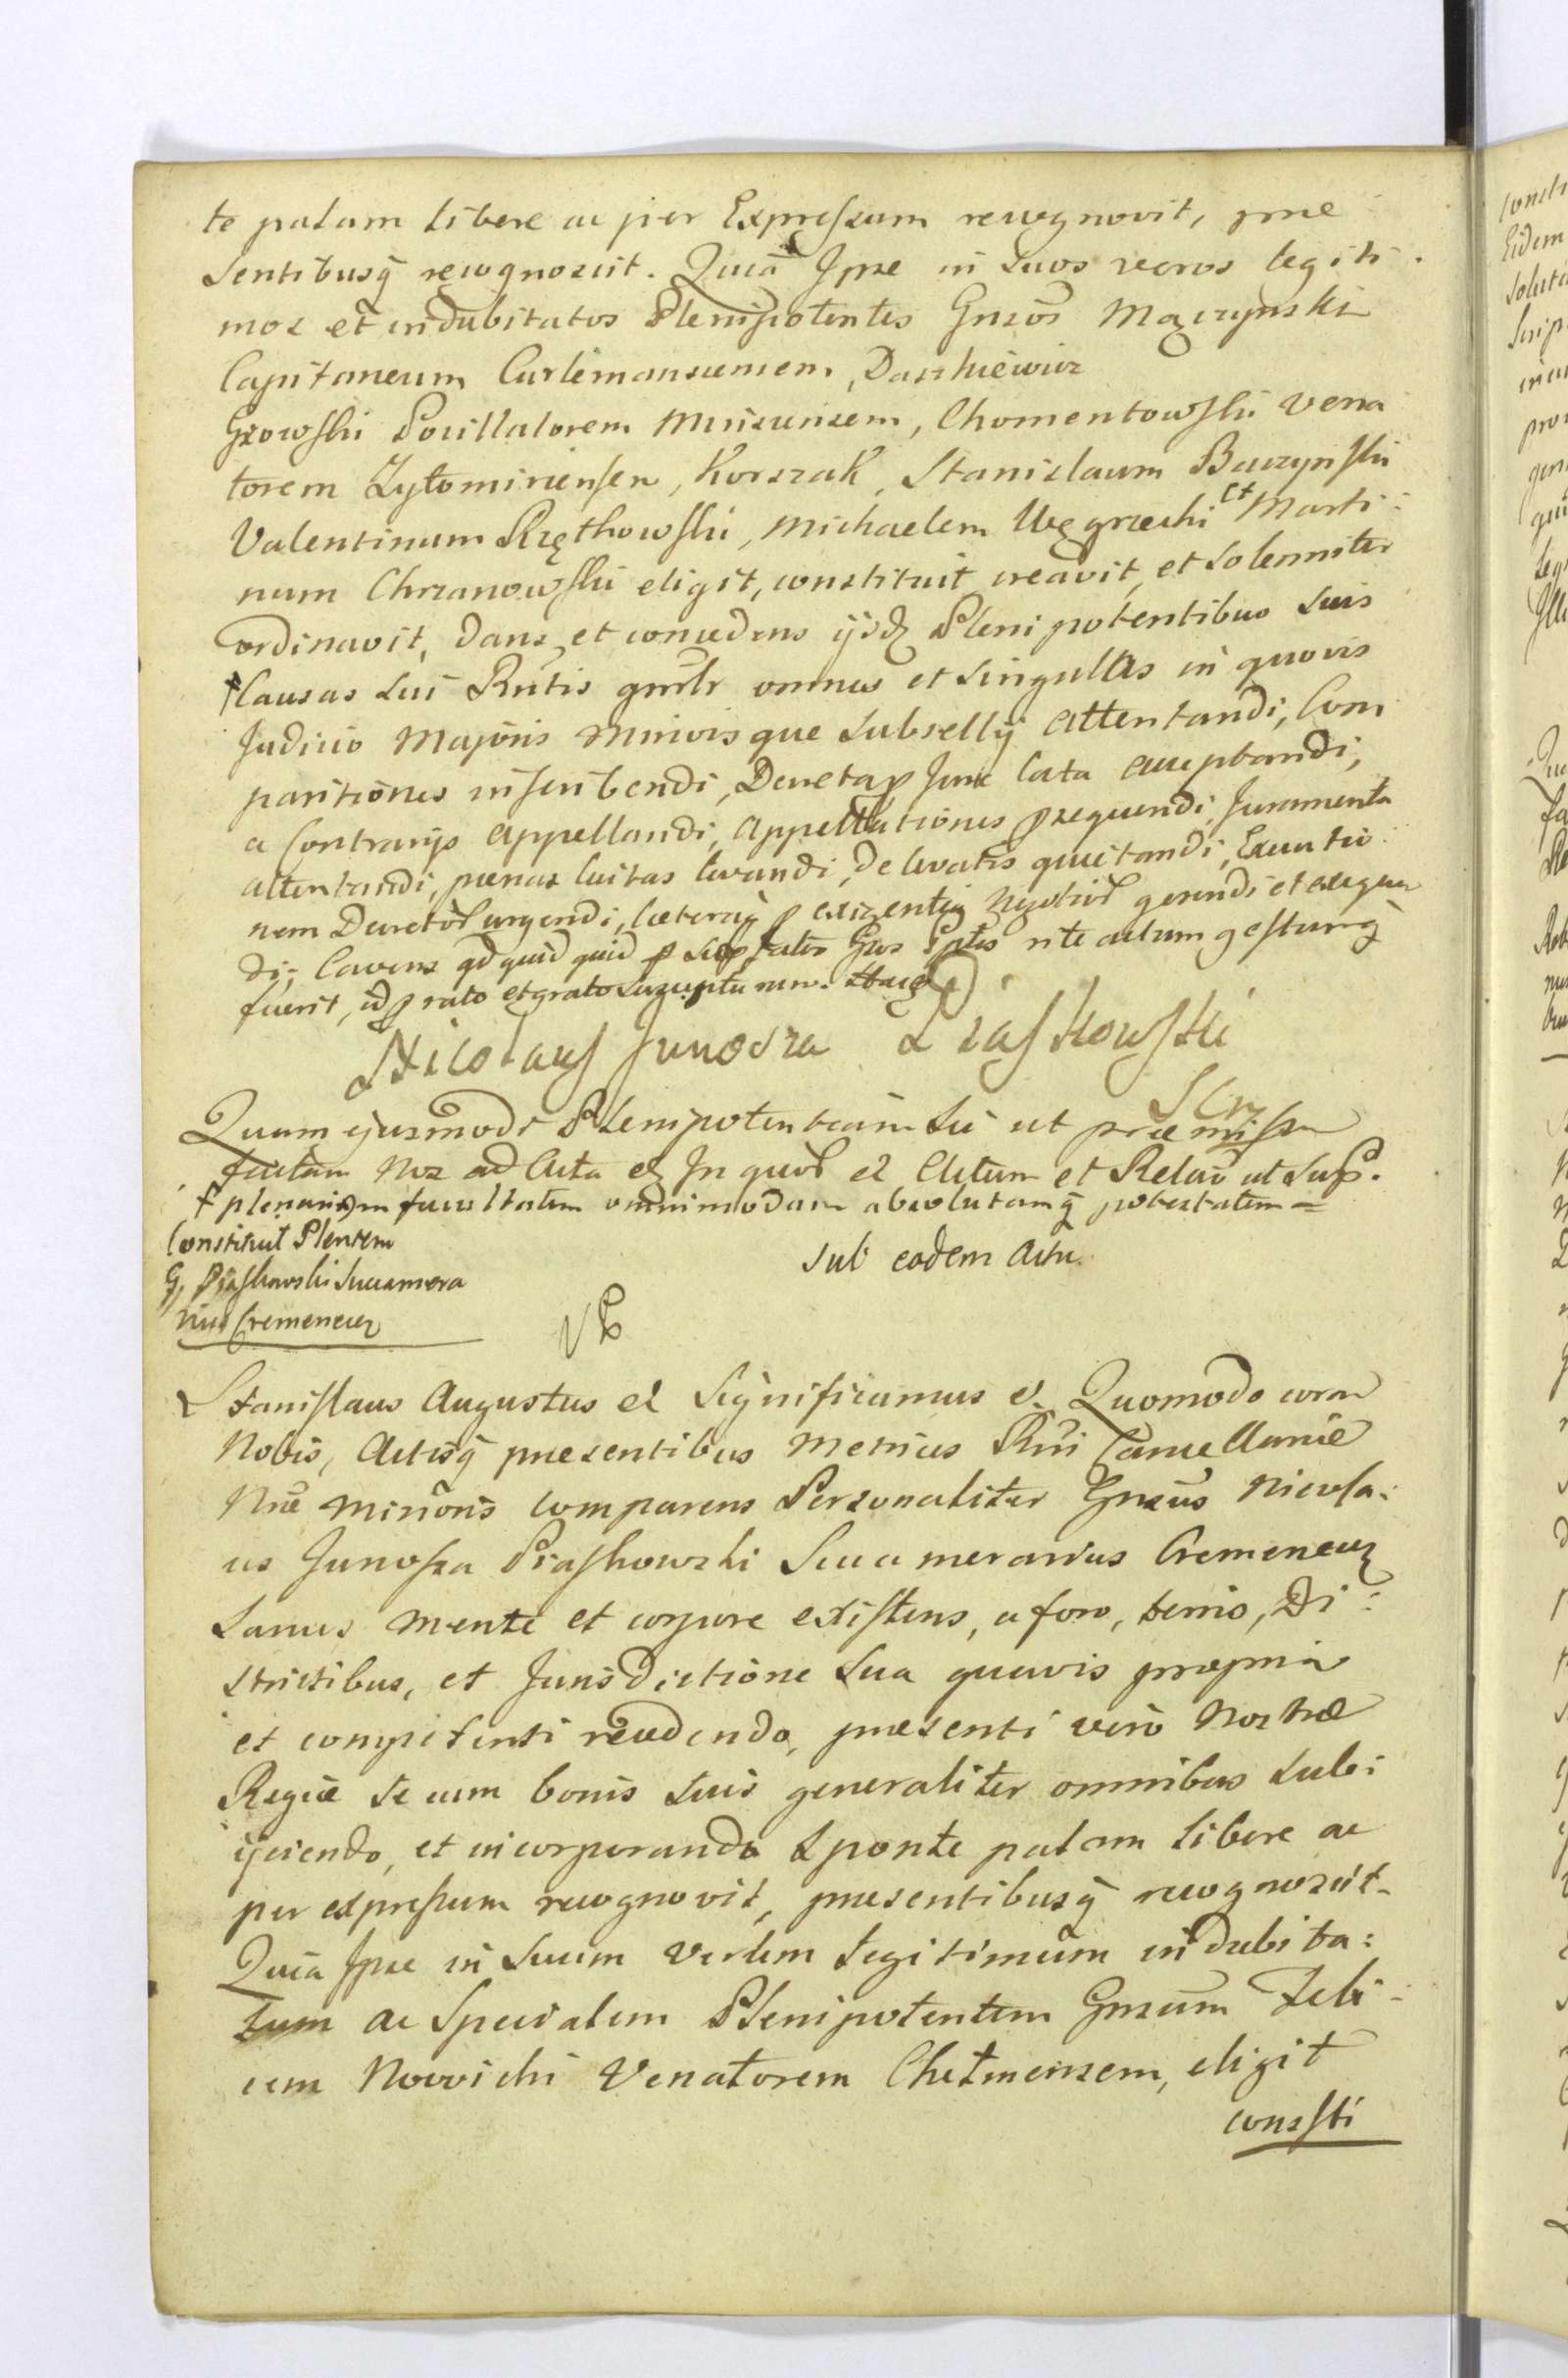 te palam libere ac per Expressum recognovit, prae
sentibusq recognoscit. Quia Ipse in suos veros legiti
mos et indubitatos Plenipotentes Gnsos Mączynski
Capitaneum Curlemansuensem, Daszkiewicz
Gzowski Pocillatorem Mscisensem, Chomentowski Vena
torem Zytomiriensem, Korszak, Stanislaum Baczynski
Valentinum Rzętkowski, Michaelem Węgrzecki et Marti:
num Chrzanowski eligit, constituit creavit, et solemniter
ordinavit, dans et concedens ijsdq Plenipotentibus suis
† Causas sui Rntis gnrlr omnes et singullas in quovis
Judicio Majoris Minorisque subsellij attentandi, Com
paritiones inscribendi, Decreta p Jure lata acceptandi,
a Contrarijs appellandi, appellationes prosequendi, Juramenta
attentandi, paenas luitas levandi, de levatis quietandi, Executio
nem Decretor urgendi, caeteraq p exigentia Negotior gerendi et exequen
di; Cavens qd quid quid p supfatos Gsos Pntes rite actum gestumq
fuerit, id p rato et grato suscepturum.
Nicolaus Junosza Piaskowski
Quam ejusmodi Plenipotentiam sic ut praemissum
factam Nos ad Acta ec In quor ec Actum et Relao ut Sup.
† plenariam facultatem omnimodam absolutamq potestatem =
Constituit Plentem
G, Piaskowski Succamera
rius Cremenecen
sub eodem Actu.
Stanislaus Augustus ec Significamus ec. Quomodo coram
Nobis, Actisq praesentibus Metrices Rni Cancellariae
Nrae Minoris comparens Personaliter Gnsus Nicola:
us Junosza Piaskowski Succamerarius Cremenecen
Sanus mente et corpore existens, a foro, terrio, Di:
strictibus, et Jurisdictione sua quavis propria
et competenti recedendo, praesenti vero Nostrae
Regiae se cum bonis suis generaliter omnibus subi
ijciendo, et incorporando sponte palam libere ac
per expressum recognovit, praesentibusq recognoscit.
Quia Ipse in suum verum legitimum indubita:
tum ac specialem Plenipotentem Gnsum Feli:
cem Nowicki Venatorem Chelmensem, eligit
consti